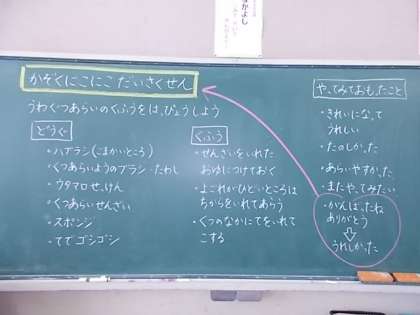 かぞくにこにこだいさくせん
うわぐつあらいのくふうをはっぴょうしよう
どうぐ
・ハブラシ(こまかいところ)
・くつあらいようのブラシ・たわし
・ウタマロせっけん
・くつあらいせんざい
・スポンジ
・てでゴシゴシ
くふう
・せんざいをいれた
おゆにつけておく
・よごれがひどいところは
ちからをいれてあらう
・くつのなかにてをいれて
こする
やってみておもったこと
・きれいになって
うれしい
・たのしかった
・あらいやすかった
・またやってみたい
・がんばったね
ありがとう
⇩
うれしかった